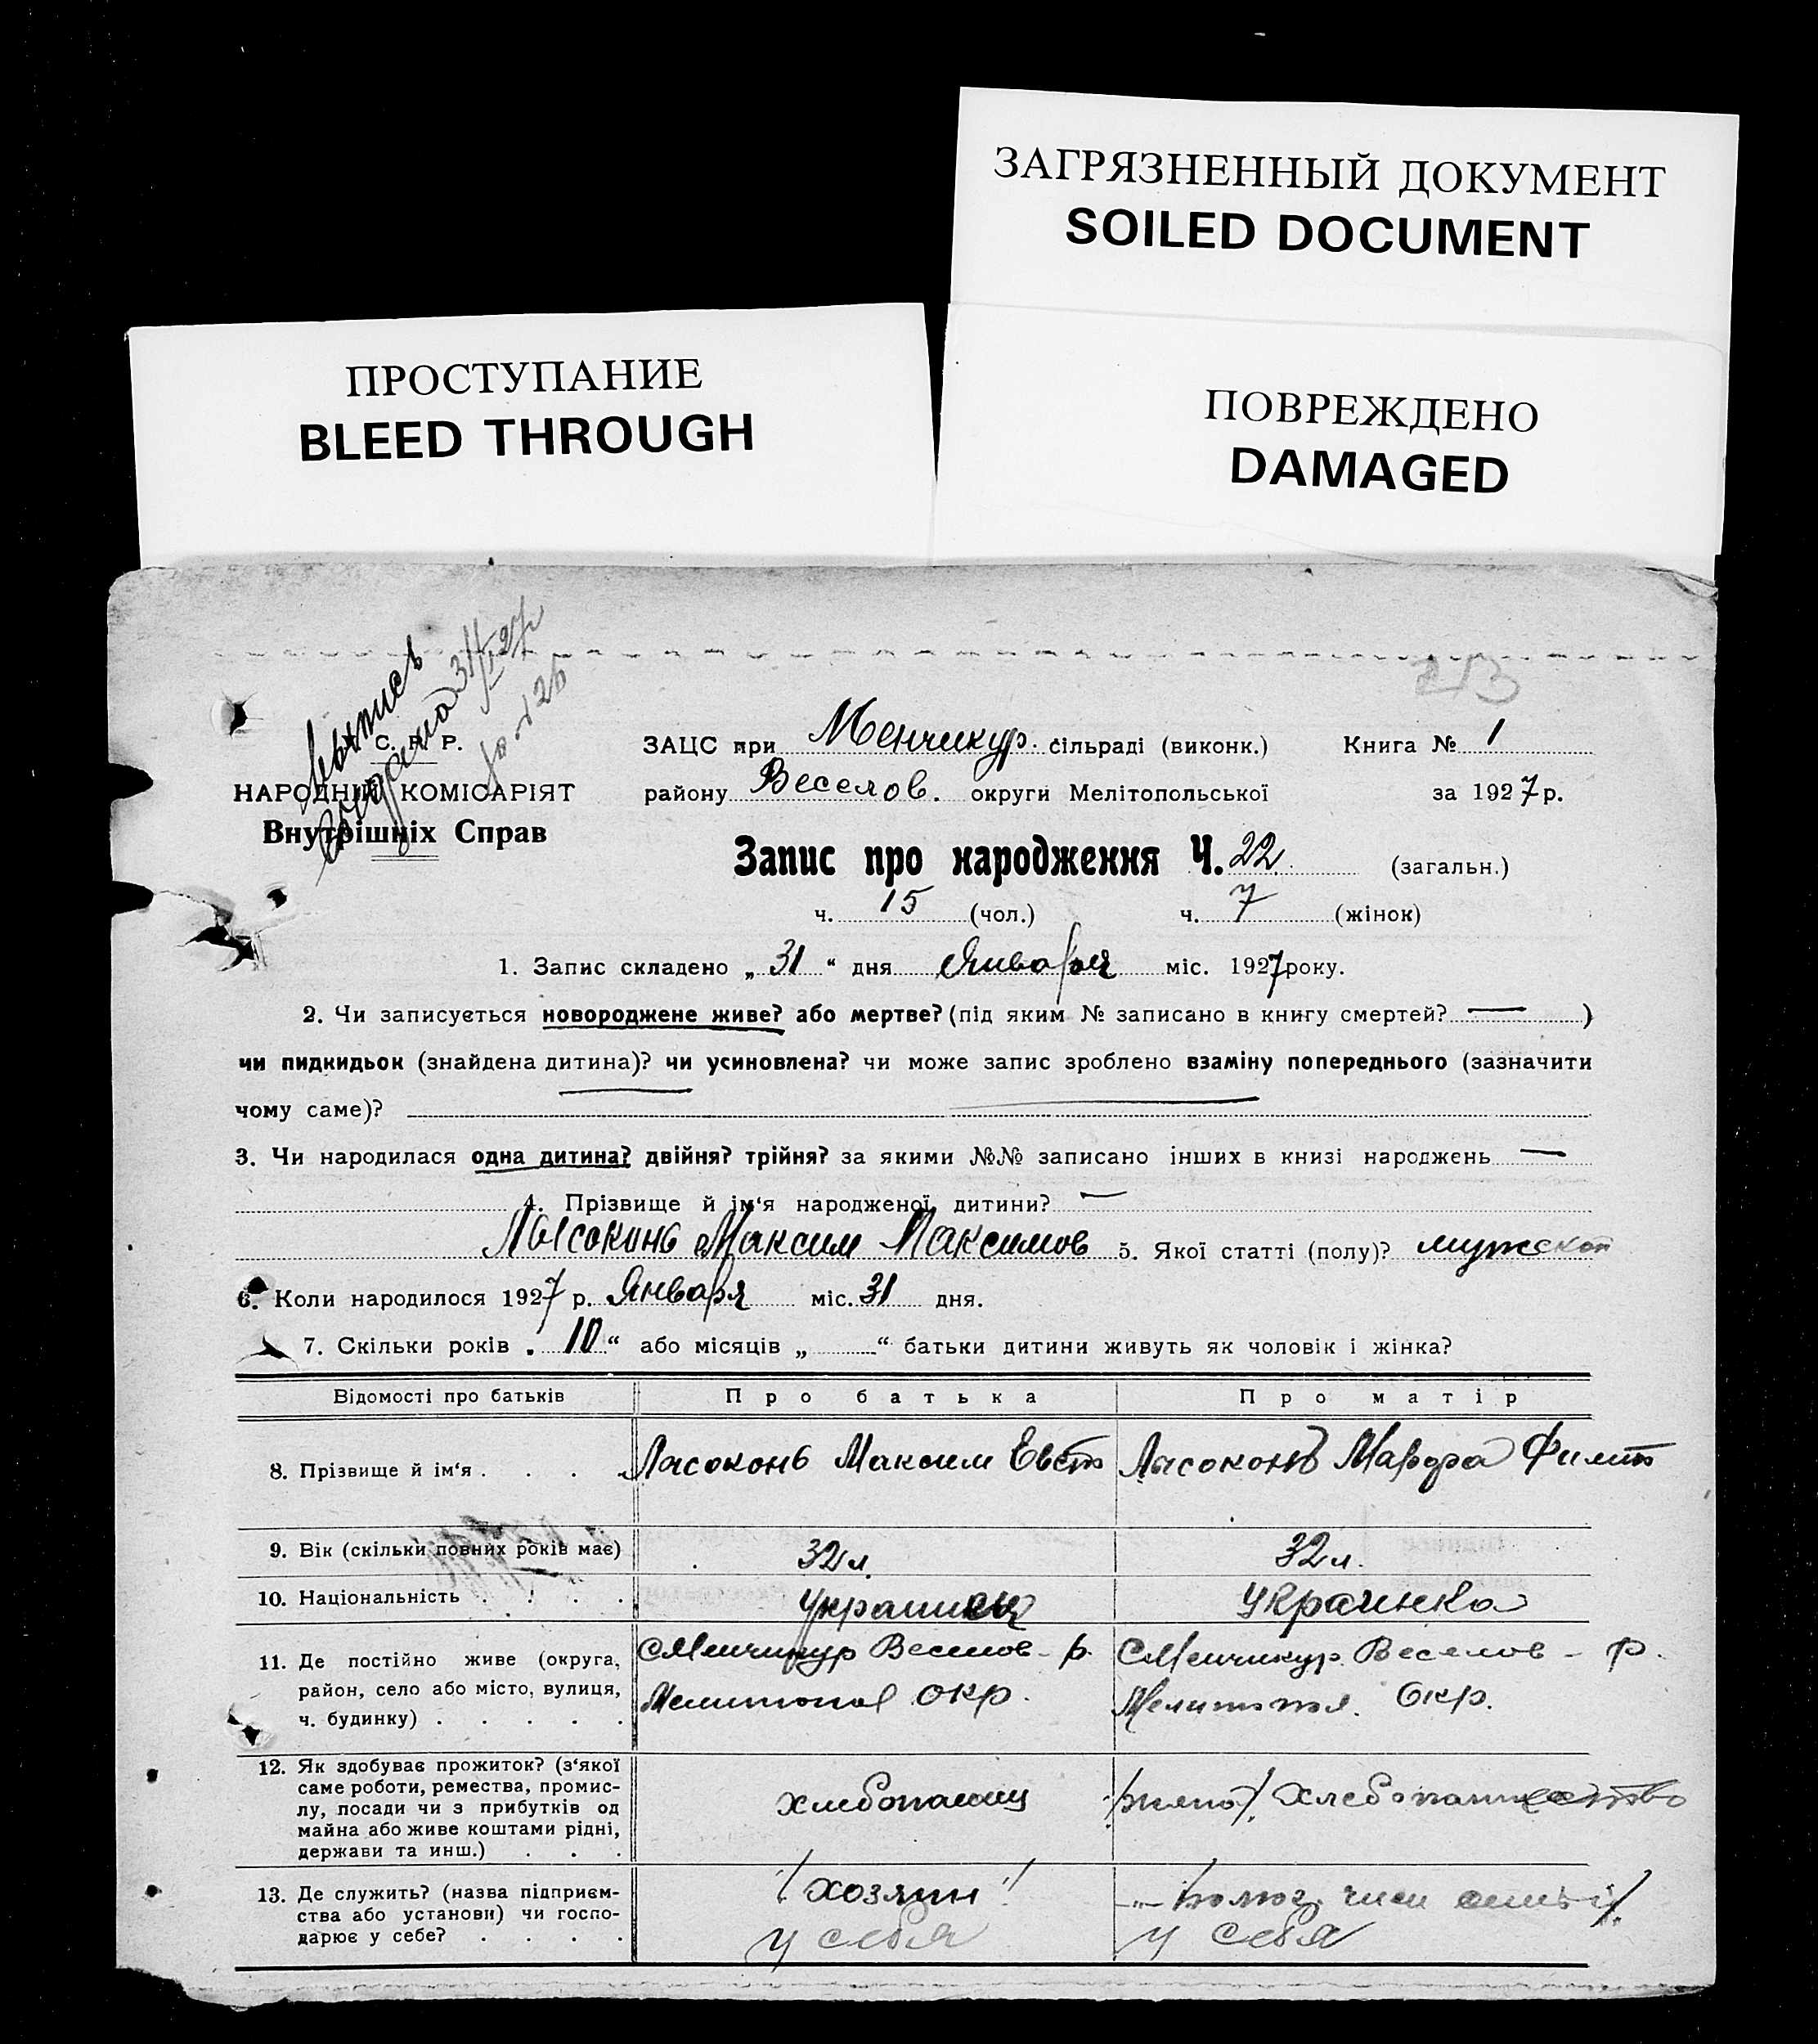 ЗАГРЯЗНЕННЫЙ ДОКУМЕНТ
SOILED DOCUMENT
ПРОСТУПАНИЕ
BLEED THROUGH
ПОВРЕЖДЕНО
DAMAGED
213
Выпись
выдана 31/I 27
за № 26
У. С. Р. Р.
НАРОДНІЙ КОМІСАРІЯТ
Внутрішніх Справ
ЗАЦС при Менчикур. сільраді (виконк.) Книга № 1
району Веселов. округи Мелітопольської за 1927 р.
Запис про народження Ч. 22 (загальн.)
ч. 15 (чол.) ч. 7 (жінок)
1. Запис складено „ 31 “ дня Января міс. 1927 року.
2. Чи записується новороджене живе? або мертве? (під яким № записано в книгу смертей? — )
чи пидкидьок (знайдена дитина)? чи усиновлена? чи може запис зроблено взаміну попереднього (зазначити
чому саме)?
3. Чи народилася одна дитина? двійня? трійня? за якими №№ записано інших в книзі народжень —
4. Прізвище й ім‘я народженої дитини? —
Лысоконь Максим Максимов 5. Якої статті (полу)? мужской
6. Коли народилося 1927 р. Января міс. 31 дня.
7. Скільки років „ 10 “ або місяців „ “ батьки дитини живуть як чоловік і жінка?
Відомості про батьків Про батька Про матір
8. Прізвище й ім‘я . . . . Лысоконь Максим Евст Лысоконь Марфа Филип
9. Вік (скільки повних років має) 32 л. 32 л.
10. Національність . . . . украинец украинка
11. Де постійно живе (округа, С Менчикур Веселов - р. С Менчикур. Веселов - р.
район, село або місто, вулиця, Мелитопол Окр. Мелитопол. Окр.
ч. будинку) . . . . .
12. Як здобуває прожиток? (з‘якої
саме роботи, ремества, промис-
лу, посади чи з прибутків од хлебопашец хлебопашество
майна або живе коштами рідні,
держави та инш.) . . .
13. Де служить? (назва підприєм- /хозяин/
ства або установи) чи госпо-
дарює у себе? . . . . у себя у себя